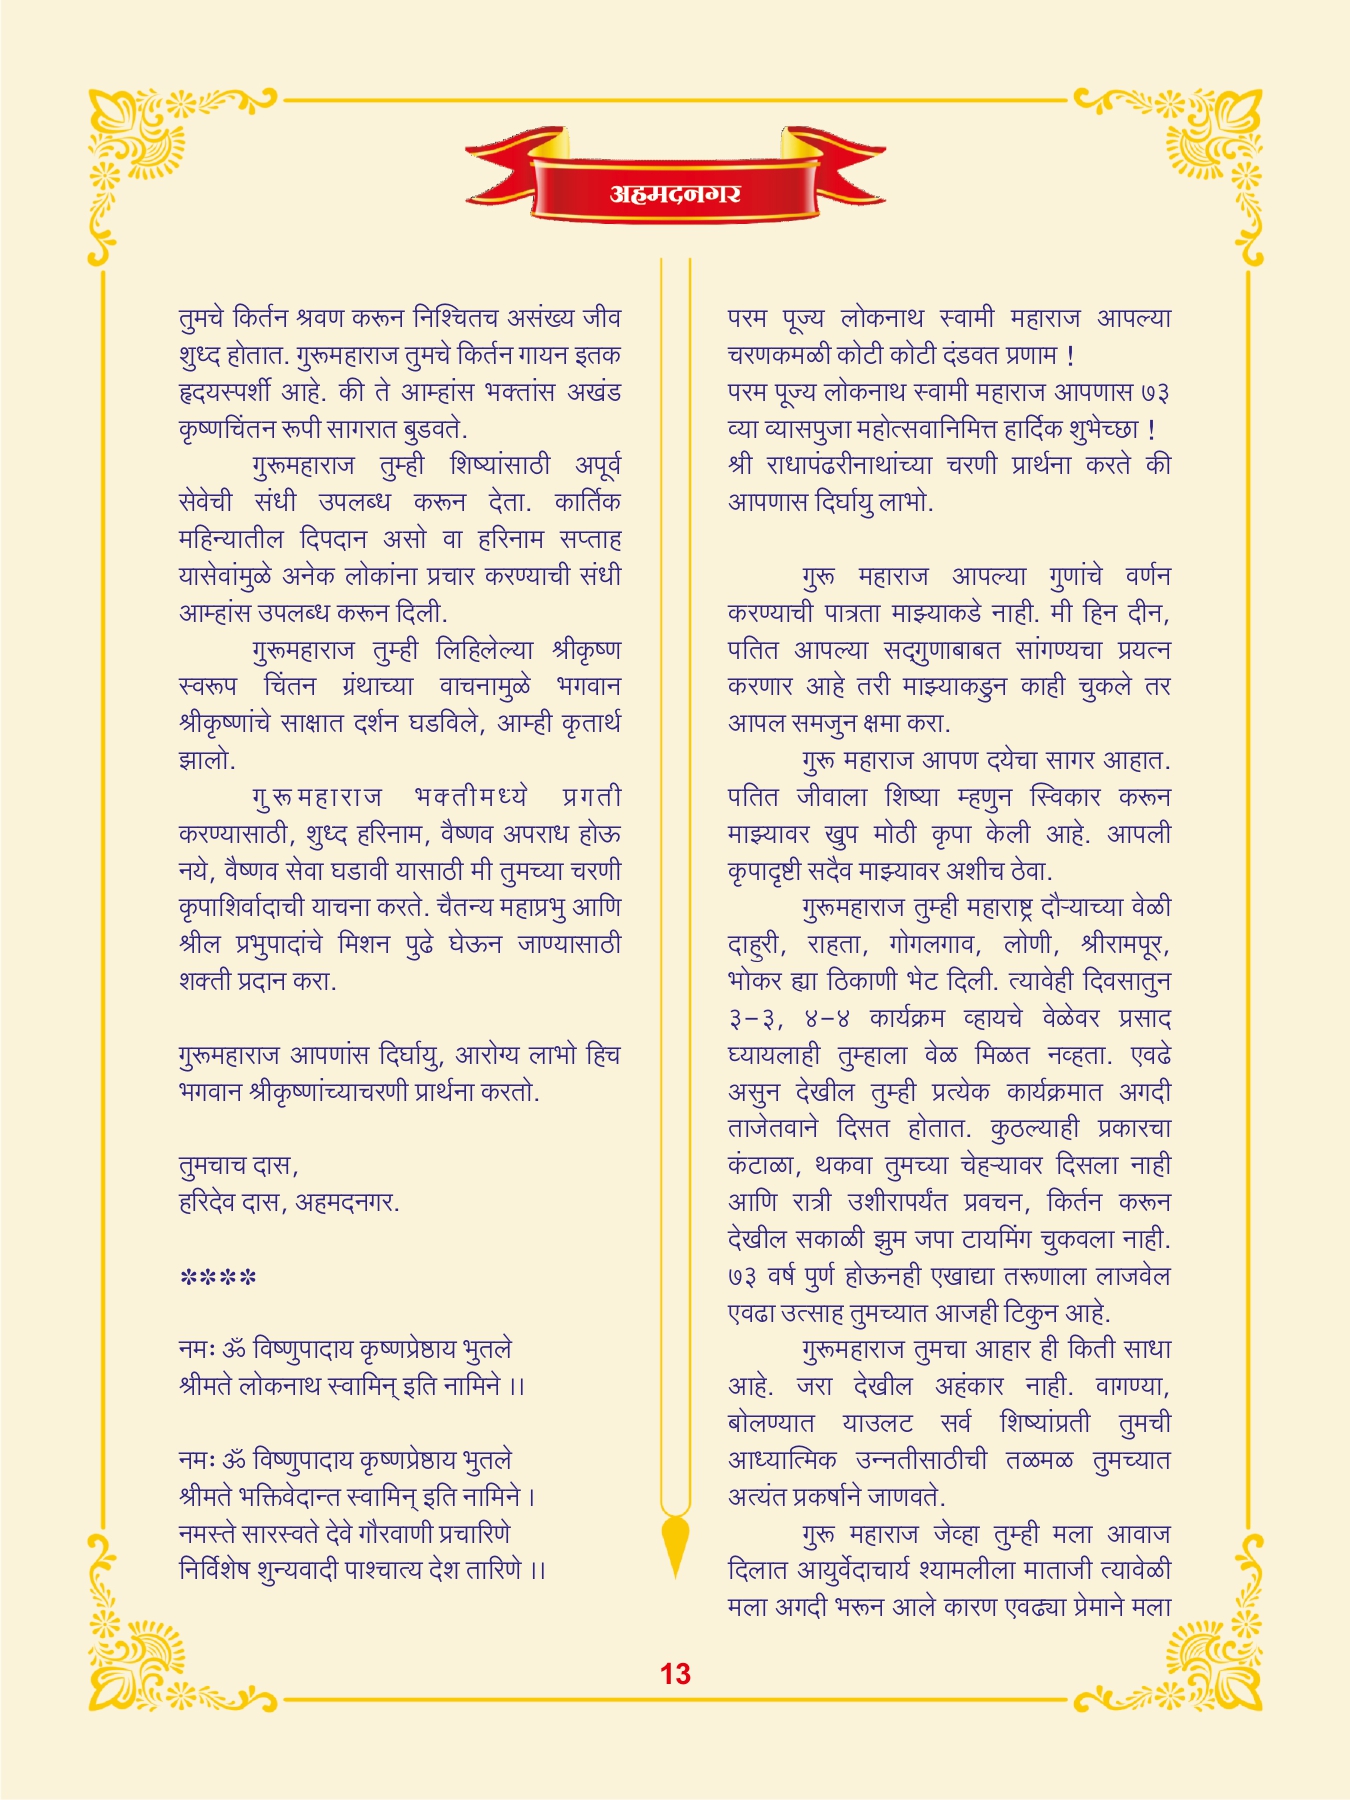 अहमदनगर
तुमचे किर्तन श्रवण करून निश्चितच असंख्य जीव
शुध्द होतात. गुरूमहाराज तुमचे किर्तन गायन इतक
हृदयस्पर्शी आहे. की ते आम्हांस भक्तांस अखंड
कृष्णचिंतन रूपी सागरात बुडवते.
गुरूमहाराज तुम्ही शिष्यांसाठी अपूर्व
सेवेची संधी उपलब्ध करून देता. कार्तिक
महिन्यातील दिपदान असो वा हरिनाम सप्ताह
यासेवांमुळे अनेक लोकांना प्रचार करण्याची संधी
आम्हांस उपलब्ध करून दिली.
गुरूमहाराज तुम्ही लिहिलेल्या श्रीकृष्ण
स्वरूप चिंतन ग्रंथाच्या वाचनामुळे भगवान
श्रीकृष्णांचे साक्षात दर्शन घडविले, आम्ही कृतार्थ
झालो.
गुरूमहाराज भक्तीमध्ये प्रगती
करण्यासाठी, शुध्द हरिनाम, वैष्णव अपराध होऊ
नये, वैष्णव सेवा घडावी यासाठी मी तुमच्या चरणी
कृपाशिर्वादाची याचना करते. चैतन्य महाप्रभु आणि
श्रील प्रभुपादांचे मिशन पुढे घेऊन जाण्यासाठी
शक्ती प्रदान करा.
गुरूमहाराज आपणांस दिर्घायु, आरोग्य लाभो हिच
भगवान श्रीकृष्णांच्याचरणी प्रार्थना करतो.
तुमचाच दास,
हरिदेव दास, अहमदनगर.
****
नमः ॐ विष्णुपादाय कृष्णप्रेष्ठाय भुतले
श्रीमते लोकनाथ स्वामिन् इति नामिने ।।
नमः ॐ विष्णुपादाय कृष्णप्रेष्ठाय भुतले
श्रीमते भक्तिवेदान्त स्वामिन् इति नामिने ।
नमस्ते सारस्वते देवे गौरवाणी प्रचारिणे
निर्विशेष शुन्यवादी पाश्चात्य देश तारिणे ।।
परम पूज्य लोकनाथ स्वामी महाराज आपल्या
चरणकमळी कोटी कोटी दंडवत प्रणाम !
परम पूज्य लोकनाथ स्वामी महाराज आपणास ७३
व्या व्यासपुजा महोत्सवानिमित्त हार्दिक शुभेच्छा !
श्री राधापंढरीनाथांच्या चरणी प्रार्थना करते की
आपणास दिर्घायु लाभो.
गुरू महाराज आपल्या गुणांचे वर्णन
करण्याची पात्रता माझ्याकडे नाही. मी हिन दीन,
पतित आपल्या सद्‌गुणाबाबत सांगण्यचा प्रयत्न
करणार आहे तरी माझ्याकडुन काही चुकले तर
आपल समजुन क्षमा करा.
गुरू महाराज आपण दयेचा सागर आहात.
पतित जीवाला शिष्या म्हणुन स्विकार करून
माझ्यावर खुप मोठी कृपा केली आहे. आपली
कृपादृष्टी सदैव माझ्यावर अशीच ठेवा.
गुरूमहाराज तुम्ही महाराष्ट्र दौऱ्याच्या वेळी
दाहुरी, राहता, गोगलगाव, लोणी, श्रीरामपूर,
भोकर ह्या ठिकाणी भेट दिली. त्यावेही दिवसातुन
३-३, ४-४ कार्यक्रम व्हायचे वेळेवर प्रसाद
घ्यायलाही तुम्हाला वेळ मिळत नव्हता. एवढे
असुन देखील तुम्ही प्रत्येक कार्यक्रमात अगदी
ताजेतवाने दिसत होतात. कुठल्याही प्रकारचा
कंटाळा, थकवा तुमच्या चेहऱ्यावर दिसला नाही
आणि रात्री उशीरापर्यंत प्रवचन, किर्तन करून
देखील सकाळी झुम जपा टायमिंग चुकवला नाही.
७३ वर्ष पुर्ण होऊनही एखाद्या तरूणाला लाजवेल
एवढा उत्साह तुमच्यात आजही टिकुन आहे.
गुरूमहाराज तुमचा आहार ही किती साधा
आहे. जरा देखील अहंकार नाही. वागण्या,
बोलण्यात याउलट सर्व शिष्यांप्रती तुमची
आध्यात्मिक उन्नतीसाठीची तळमळ तुमच्यात
अत्यंत प्रकर्षाने जाणवते.
गुरू महाराज जेव्हा तुम्ही मला आवाज
दिलात आयुर्वेदाचार्य श्यामलीला माताजी त्यावेळी
मला अगदी भरून आले कारण एवढ्या प्रेमाने मला
13